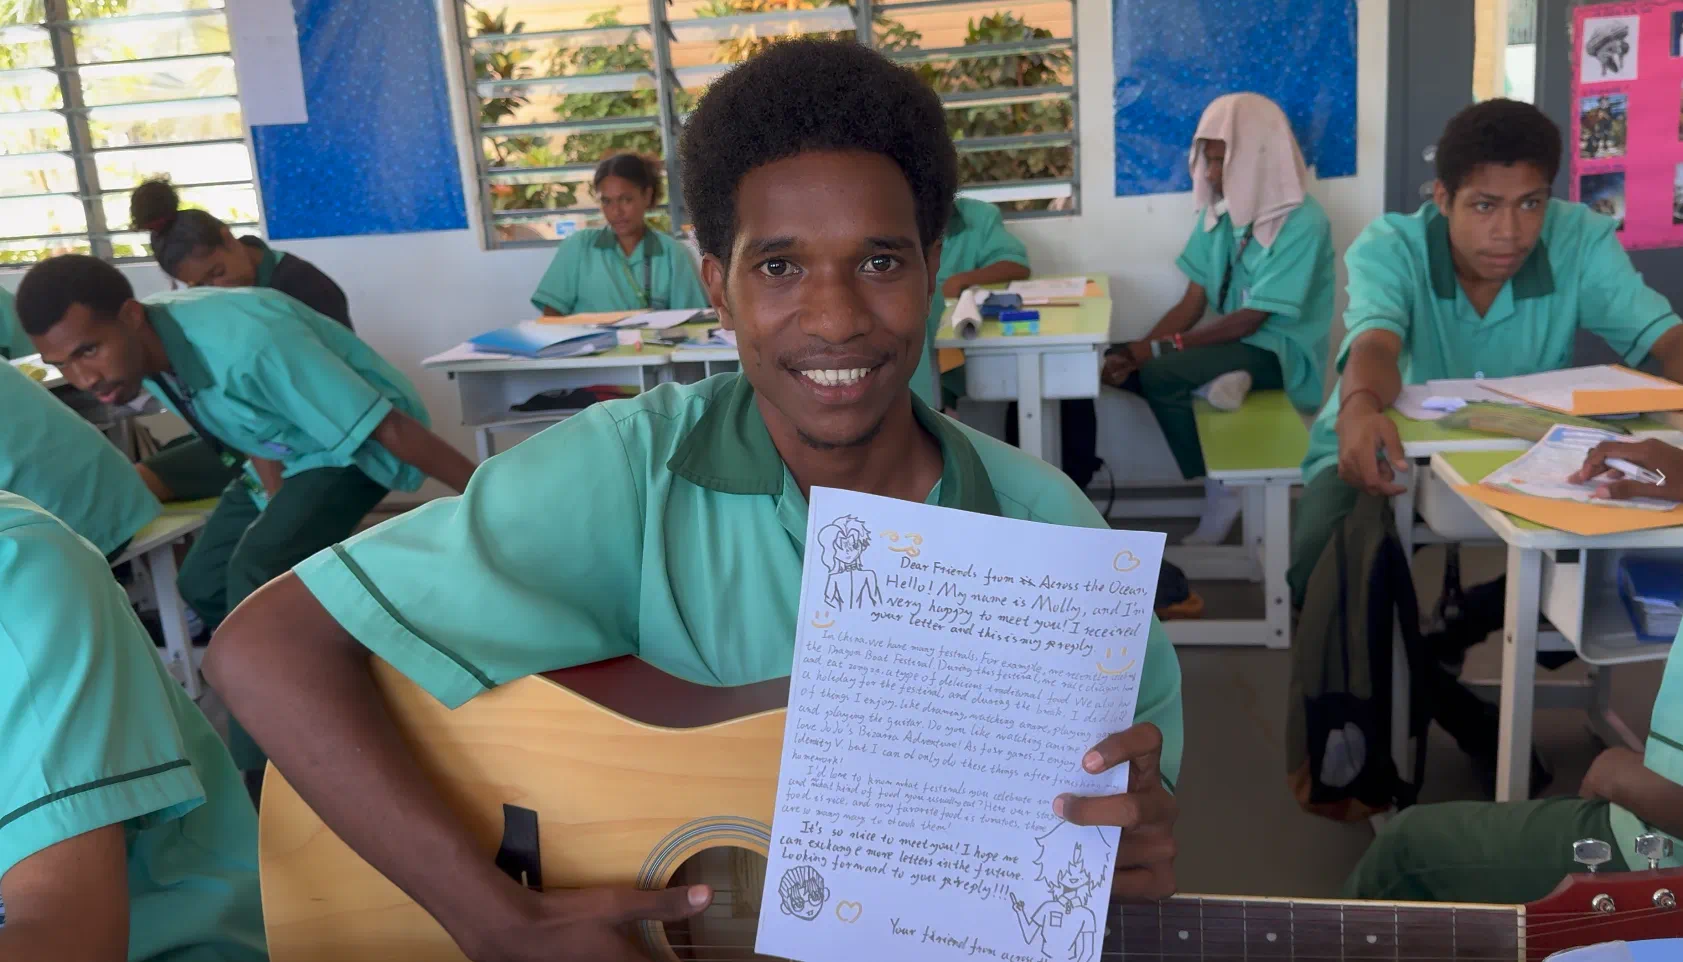 Dear Friends from Across the Ocean,
Hello! My name is Molly, and I'm
very happy to meet you! I received
your letter and this is my reply.
In China, we have many festivals. For example, we recently
the Dragon Boat Festival. During this festival, we race dragon
and eat zongzi, a type of delicious traditional food. We also
a holiday for the festival, and during the break, I did
of things I enjoy, like drawing, watching anime, playing
and playing the guitar. Do you like watching anime?
love JoJo's Bizarre Adventure! As for games, I enjoy
Identity V, but I can only do these things after
homework!
I'd love to know what festivals you celebrate
and what kind of food you usually eat? Here our
food is rice, and my favorite food is tomatoes,
are so many ways to cook them!
It's so nice to meet you! I hope we
can exchange more letters in the future.
Looking forward to your reply!!!
Your friend from across